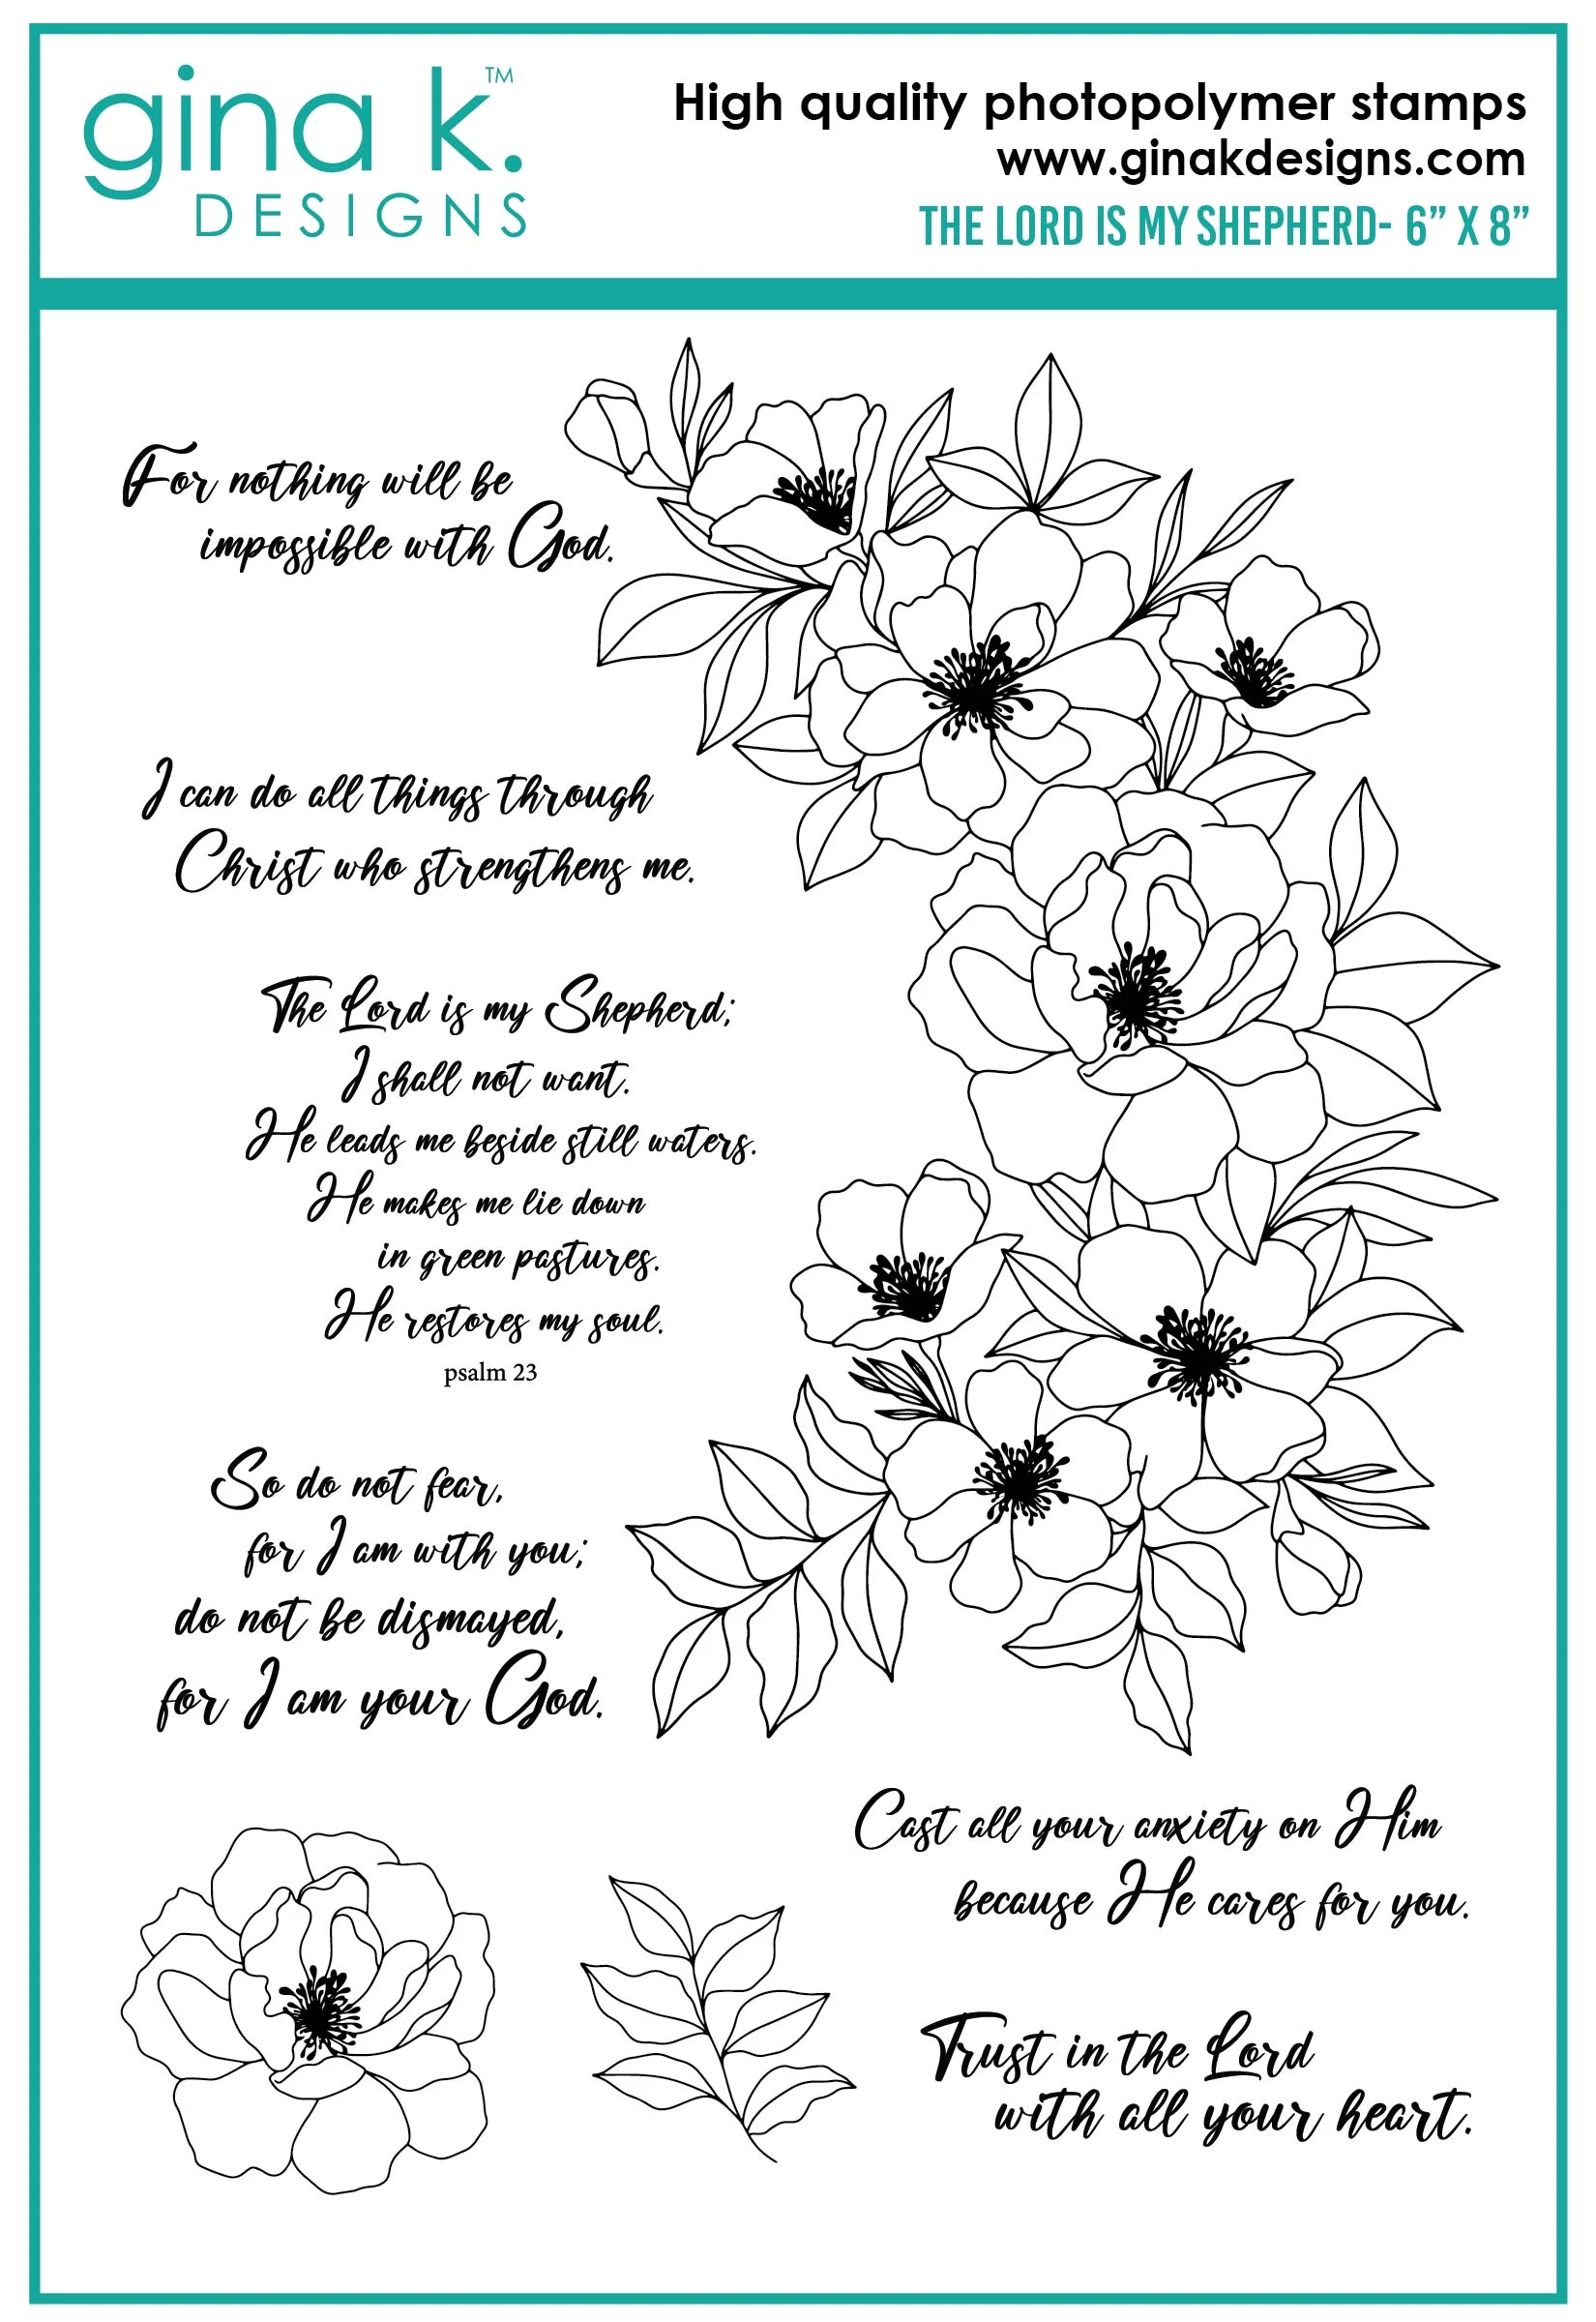 gina k.™
DESIGNS
High quality photopolymer stamps
www.ginakdesigns.com
THE LORD IS MY SHEPHERD- 6” X 8”
For nothing will be
impossible with God.
I can do all things through
Christ who strengthens me.
The Lord is my Shepherd;
I shall not want.
He leads me beside still waters.
He makes me lie down
in green pastures.
He restores my soul.
psalm 23
So do not fear,
for I am with you;
do not be dismayed,
for I am your God.
Cast all your anxiety on Him
because He cares for you.
Trust in the Lord
with all your heart.